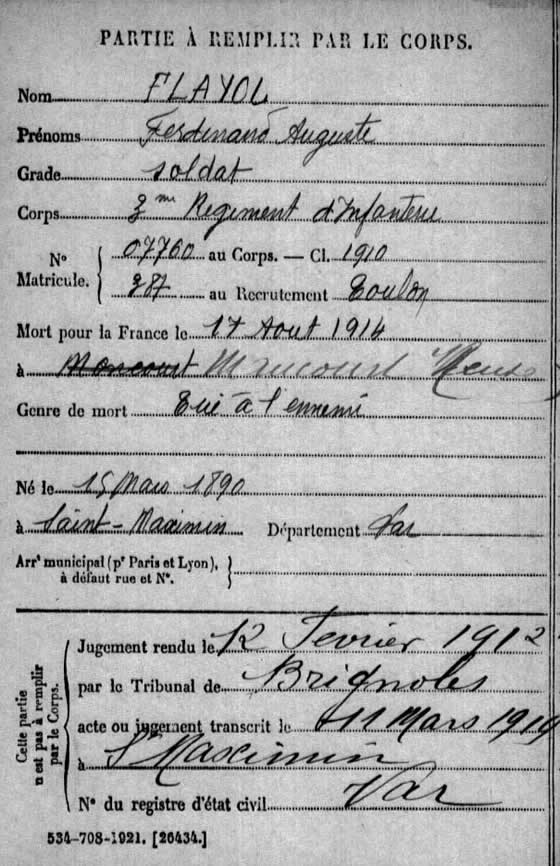 PARTIE À REMPLIR PAR LE CORPS.
Nom FLAYOL
Prénoms Ferdinand Auguste
Grade Soldat
Corps 3me Regiment d'Infanterie
No Matricule. 07760 au Corps. — Cl. 1910
387 au Recrutement Toulon
Mort pour la France le 17 Aout 1914
à Moncourt
Genre de mort Tué à l'ennemi
Né le 15 Mars 1890
à Saint-Maximin Département Var
Arrt municipal (pr Paris et Lyon),
à défaut rue et No.
Cette partie n'est pas à remplir par le Corps.
Jugement rendu le 12 Fevrier
par le Tribunal de Brignoles
acte ou jugement transcrit le 11 Mars 1919
à St Maximin
Var
No du registre d'état civil
534-708-1921. [26434.]